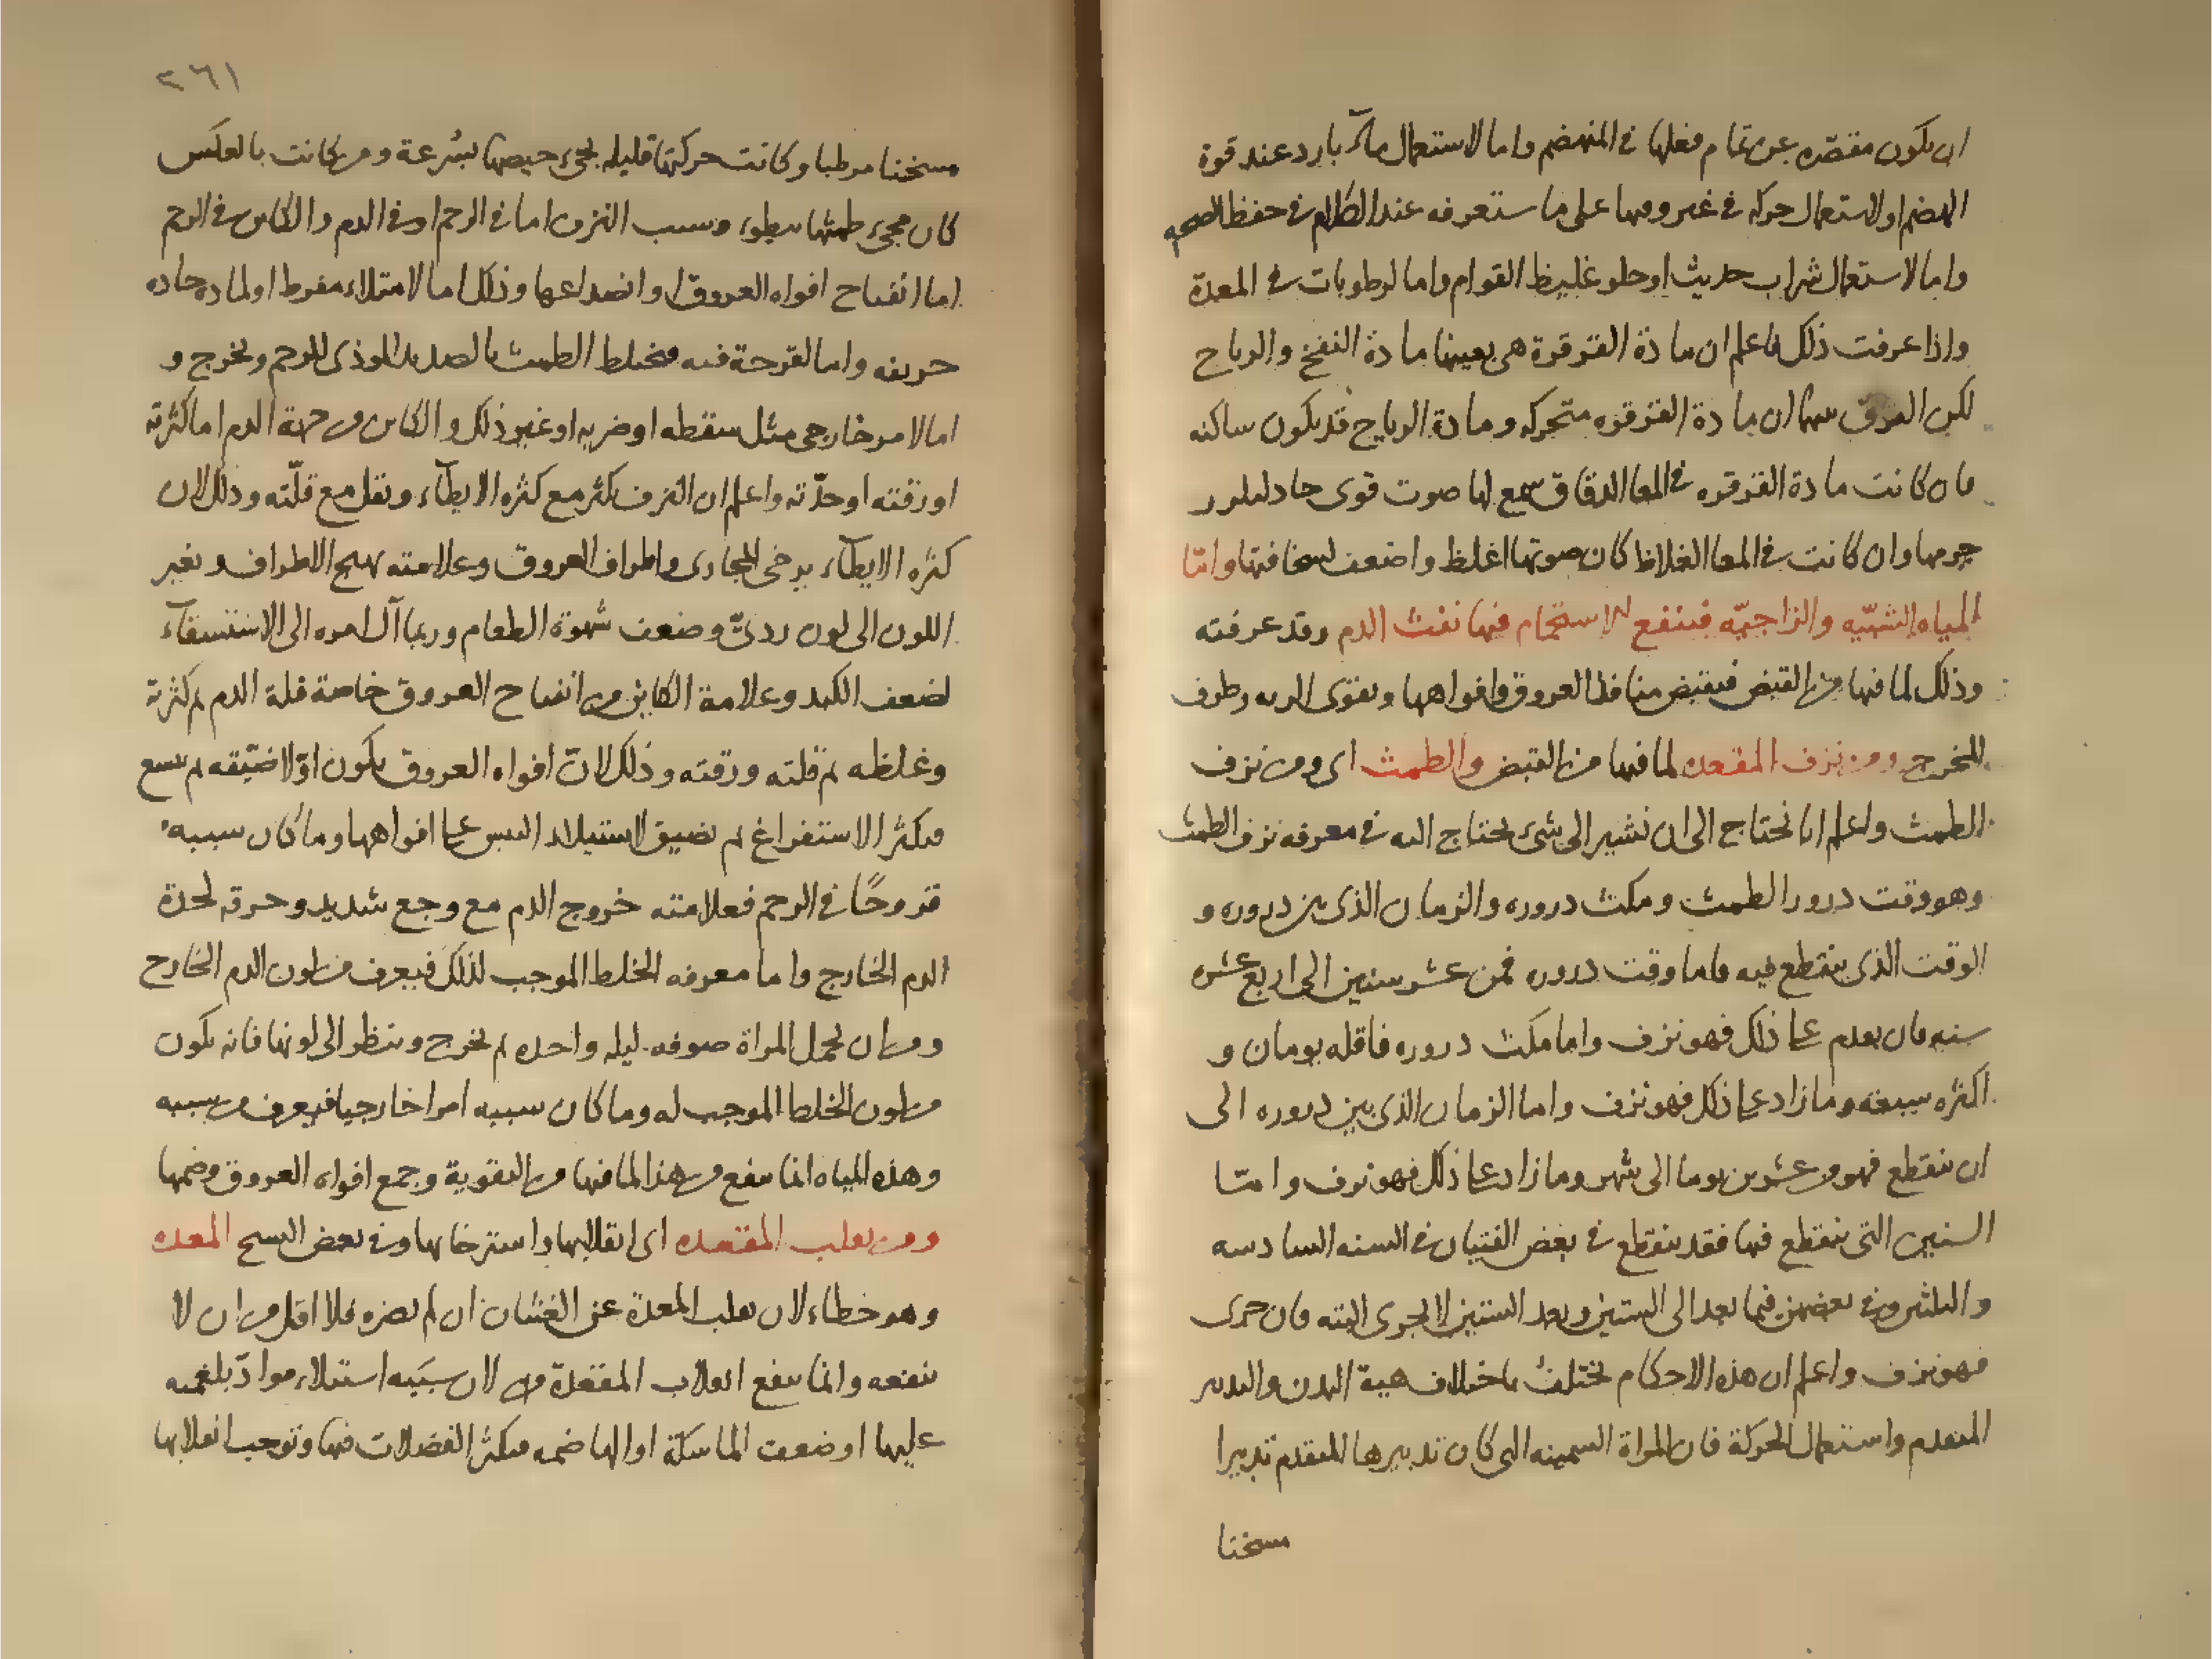 ان يكون مقصره عن تمام فعلها في المنهضم واما لاستعمال ماء بارد عند قوة
الهضم او لاستعمال حركه في غير وقتها على ما ستعرفه عند الكلام في حفظ الصحه
واما لاستعمال شراب حديث او حلو غليظ القوام واما لرطوبات في المعدة
واذا عرفت ذلك فاعلم ان مادة القرقرة هى بعينها مادة النفخ والرياح
لكن الفرق بينهما ان مادة القرقره متحركه ومادة الرياح قد يكون ساكنه
فان كانت مادة القرقره في المعا الدقاق سمع لها صوت قوى حاد
جرمها وان كانت في المعا الغلاظ كان صوتها اغلظ واضعف لسخافتها واما
المياه الشبيه والزاجيه فينفع الاستحمام فيها نفث الدم وقد عرفته
وذلك لما فيها من القبض فيقبض منافذ العروق وافواهها ويقوى الريه وطرف
المخرج ومن نزف المقعده لما فيها من القبض والطمث اى ومن نزف
الطمث واعلم انا نحتاج الى ان نشير الى شئ يحتاج اليه في معرفه نزف الطمث
وهو وقت درور الطمث ومكث دروره والزمان الذى بين دروره و
الوقت الذى ينقطع فيه فاما وقت دروره فمن عشر سنين الى اربع عشره
سنه فان تقدم على ذلك فهو نزف واما مكث دروره فاقله يومان و
اكثره سبعه وما زاد على ذلك فهو نزف واما الزمان الذى بين دروره الى
ان ينقطع فهو من عشرين يوما الى شهر وما زاد على ذلك فهو نزف واما
السنين التى ينقطع فيها فقد ينقطع في بعض الفتيان في السنه السادسه
والثلثين وفي بعضهن فيما بعد الى الستين وبعد الستين لا يجرى البته فان جرى
فهو نزف واعلم ان هذه الاحكام تختلف باختلاف هية البدن والتدبير
المتقدم واستعمال الحركة فان المراة السمينه التى كان تدبيرها المتقدم تدبيرا
مسخنا
٢٦١
مسخنا مرطبا وكانت حركتها قليله يجئ حيضها بسرعة ومن كانت بالعكس
كان مجئ طمثها بطوء وسبب النزف اما في الرحم او في الدم والكاين في الرحم
اما انفتاح افواه العروق او انصداعها وذلك اما لامتلاء مفرط او لمادة حاده
حريفه واما لقرحة فيه فيختلط الطمث بالصديد الموذى للرحم ويخرج و
اما لامر خارجى مثل سقطه او ضربه او غير ذلك والكاين من جهة الدم اما كثرته
او رقته او حدّته واعلم ان النزف يكثر مع كثره الايطاء ويقل مع قلّته وذلك لان
كثره الايطاء يرخى المجارى واطراف العروق وعلامته تهيج الاطراف وتغير
اللون الى لون ردىّ وضعف شهوة الطعام وربما آل امره الى الاستسقاء
لضعف الكبد وعلامة الكاين من انفتاح العروق خاصة قلة الدم ثم كثرته
وغلظه ثم قلته ورقته وذلك لانّ افواه العروق يكون اوّلا ضيّقه ثم تتسع
فيكثر الاستفراغ ثم تضيق لاستيلاء اليبس على افواهها وما كان سببه
قروحًا في الرحم فعلامته خروج الدم مع وجع شديد وحرقه لحدة
الدم الخارج واما معرفه الخلط الموجب لذلك فيعرف من لون الدم الخارج
ومن ان تحمل المراة صوفه ليله واحده ثم تخرج وينظر الى لونها فانه يكون
من لون الخلط الموجب له وما كان سببه امرا خارجيا فيعرف من سببه
وهذه المياه انما ينفع من هذا لما فيها من التقوية وجمع افواه العروق وضمها
ومن تقلب المقعده اى انقلابها واسترخائها وفي بعض النسخ المعده
وهو خطاء لان تقلب المعدة عن الغثيان ان لم يضره فلا اقل من ان لا
ينفعه وانما ينفع انقلاب المقعدة من لان سببه استيلاء موادّ بلغميه
عليها او ضعف الماسكة او الهاضمه فيكثر الفضلات فيها وتوجب انقلابها